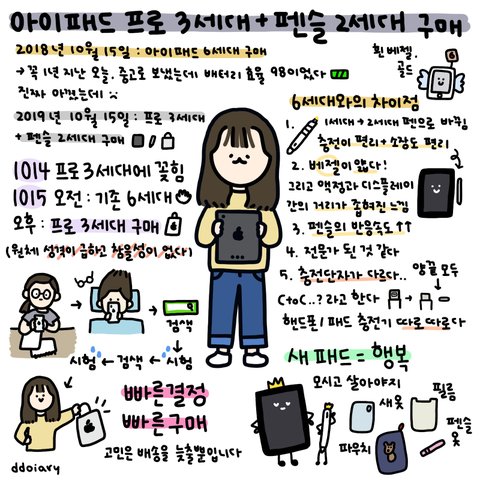 아이패드 프로 3세대 + 펜슬 2세대 구매
2018년 10월 15일 : 아이패드 6세대 구매
→ 꼭 1년 지난 오늘. 중고로 보냈는데 배터리 효율 98이었다
진짜 아꼈는데
2019년 10월 15일 : 프로 3세대
+ 펜슬 2세대 구매
1014 프로 3세대에 꽂힘
1015 오전 : 기존 6세대
오후 : 프로 3세대 구매
(원체 성격이 급하고 참을성이 없다)
검색
시험 ← 검색 ← 시험
빠른결정
빠른구매
고민은 배송을 늦출뿐입니다
ddoiary
흰 베젤.
골드
6세대와의 차이점
1. 1세대 → 2세대 펜으로 바뀜
충전이 편리 + 소장도 편리
2. 베젤이 얇다!
그리고 액정과 디스플레이
간의 거리가 좁혀진 느낌
3. 펜슬의 반응속도 ↑↑
4. 전문가 된 것 같다
5. 충전단자가 다르다..
양끝 모두
CtoC..? 라고 한다
핸드폰 / 패드 충전기 따로따로다
새 패드 = 행복
모시고 살아야지
새옷
필름
파우치
펜슬
옷